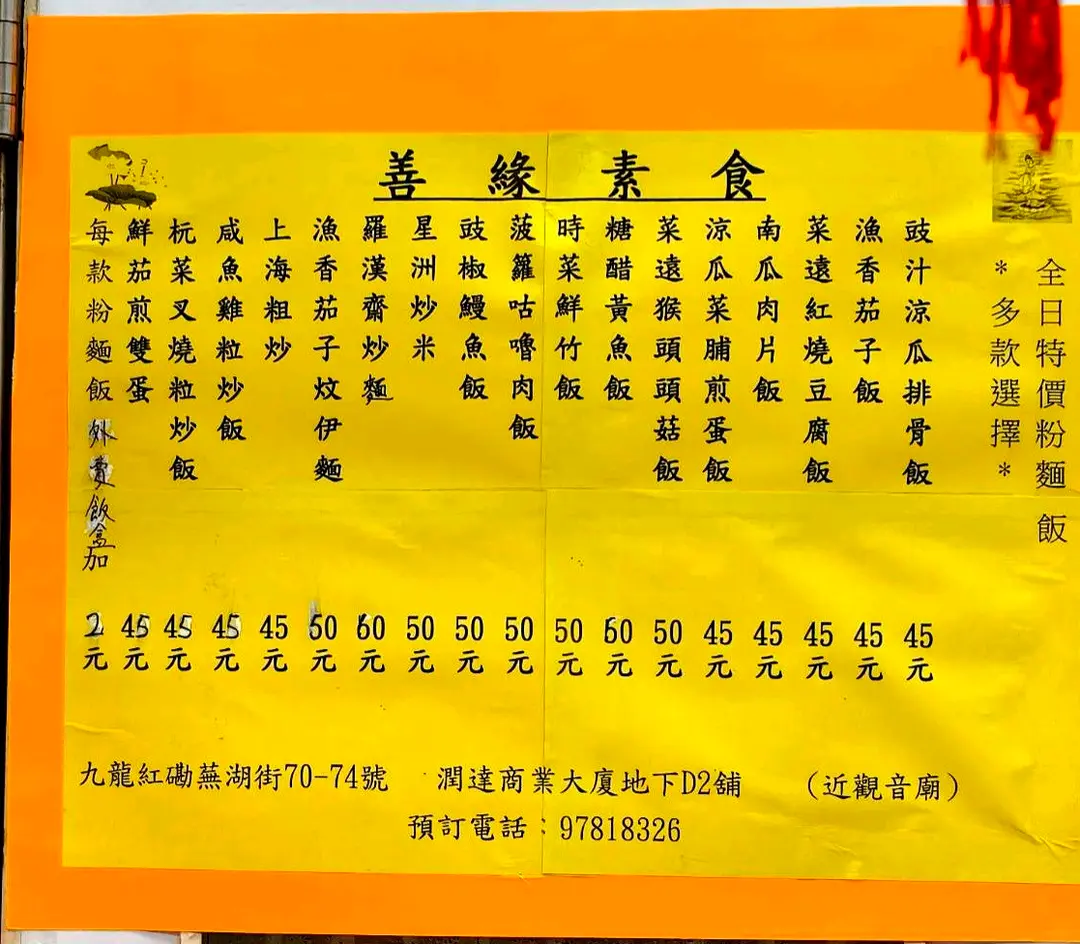 善緣素食
全日特價粉麵飯
*多款選擇*
豉汁涼瓜排骨飯 45元
漁香茄子飯 45元
菜遠紅燒豆腐飯 45元
南瓜肉片飯 45元
涼瓜菜脯煎蛋飯 45元
菜遠猴頭頭菇飯 50元
糖醋黃魚飯 50元
時菜鮮竹飯 50元
菠籮咕嚕肉飯 50元
豉椒鰻魚飯 50元
星洲炒米 50元
羅漢齋炒麵 60元
漁香茄子炆伊麵 60元
上海粗炒 45元
咸魚雞粒炒飯 45元
杬菜叉燒粒炒飯 45元
鮮茄煎雙蛋 45元
每款粉麵飯外賣飯盒加 2元
九龍紅磡蕪湖街70-74號 潤達商業大廈地下D2舖 (近觀音廟)
預訂電話:97818326